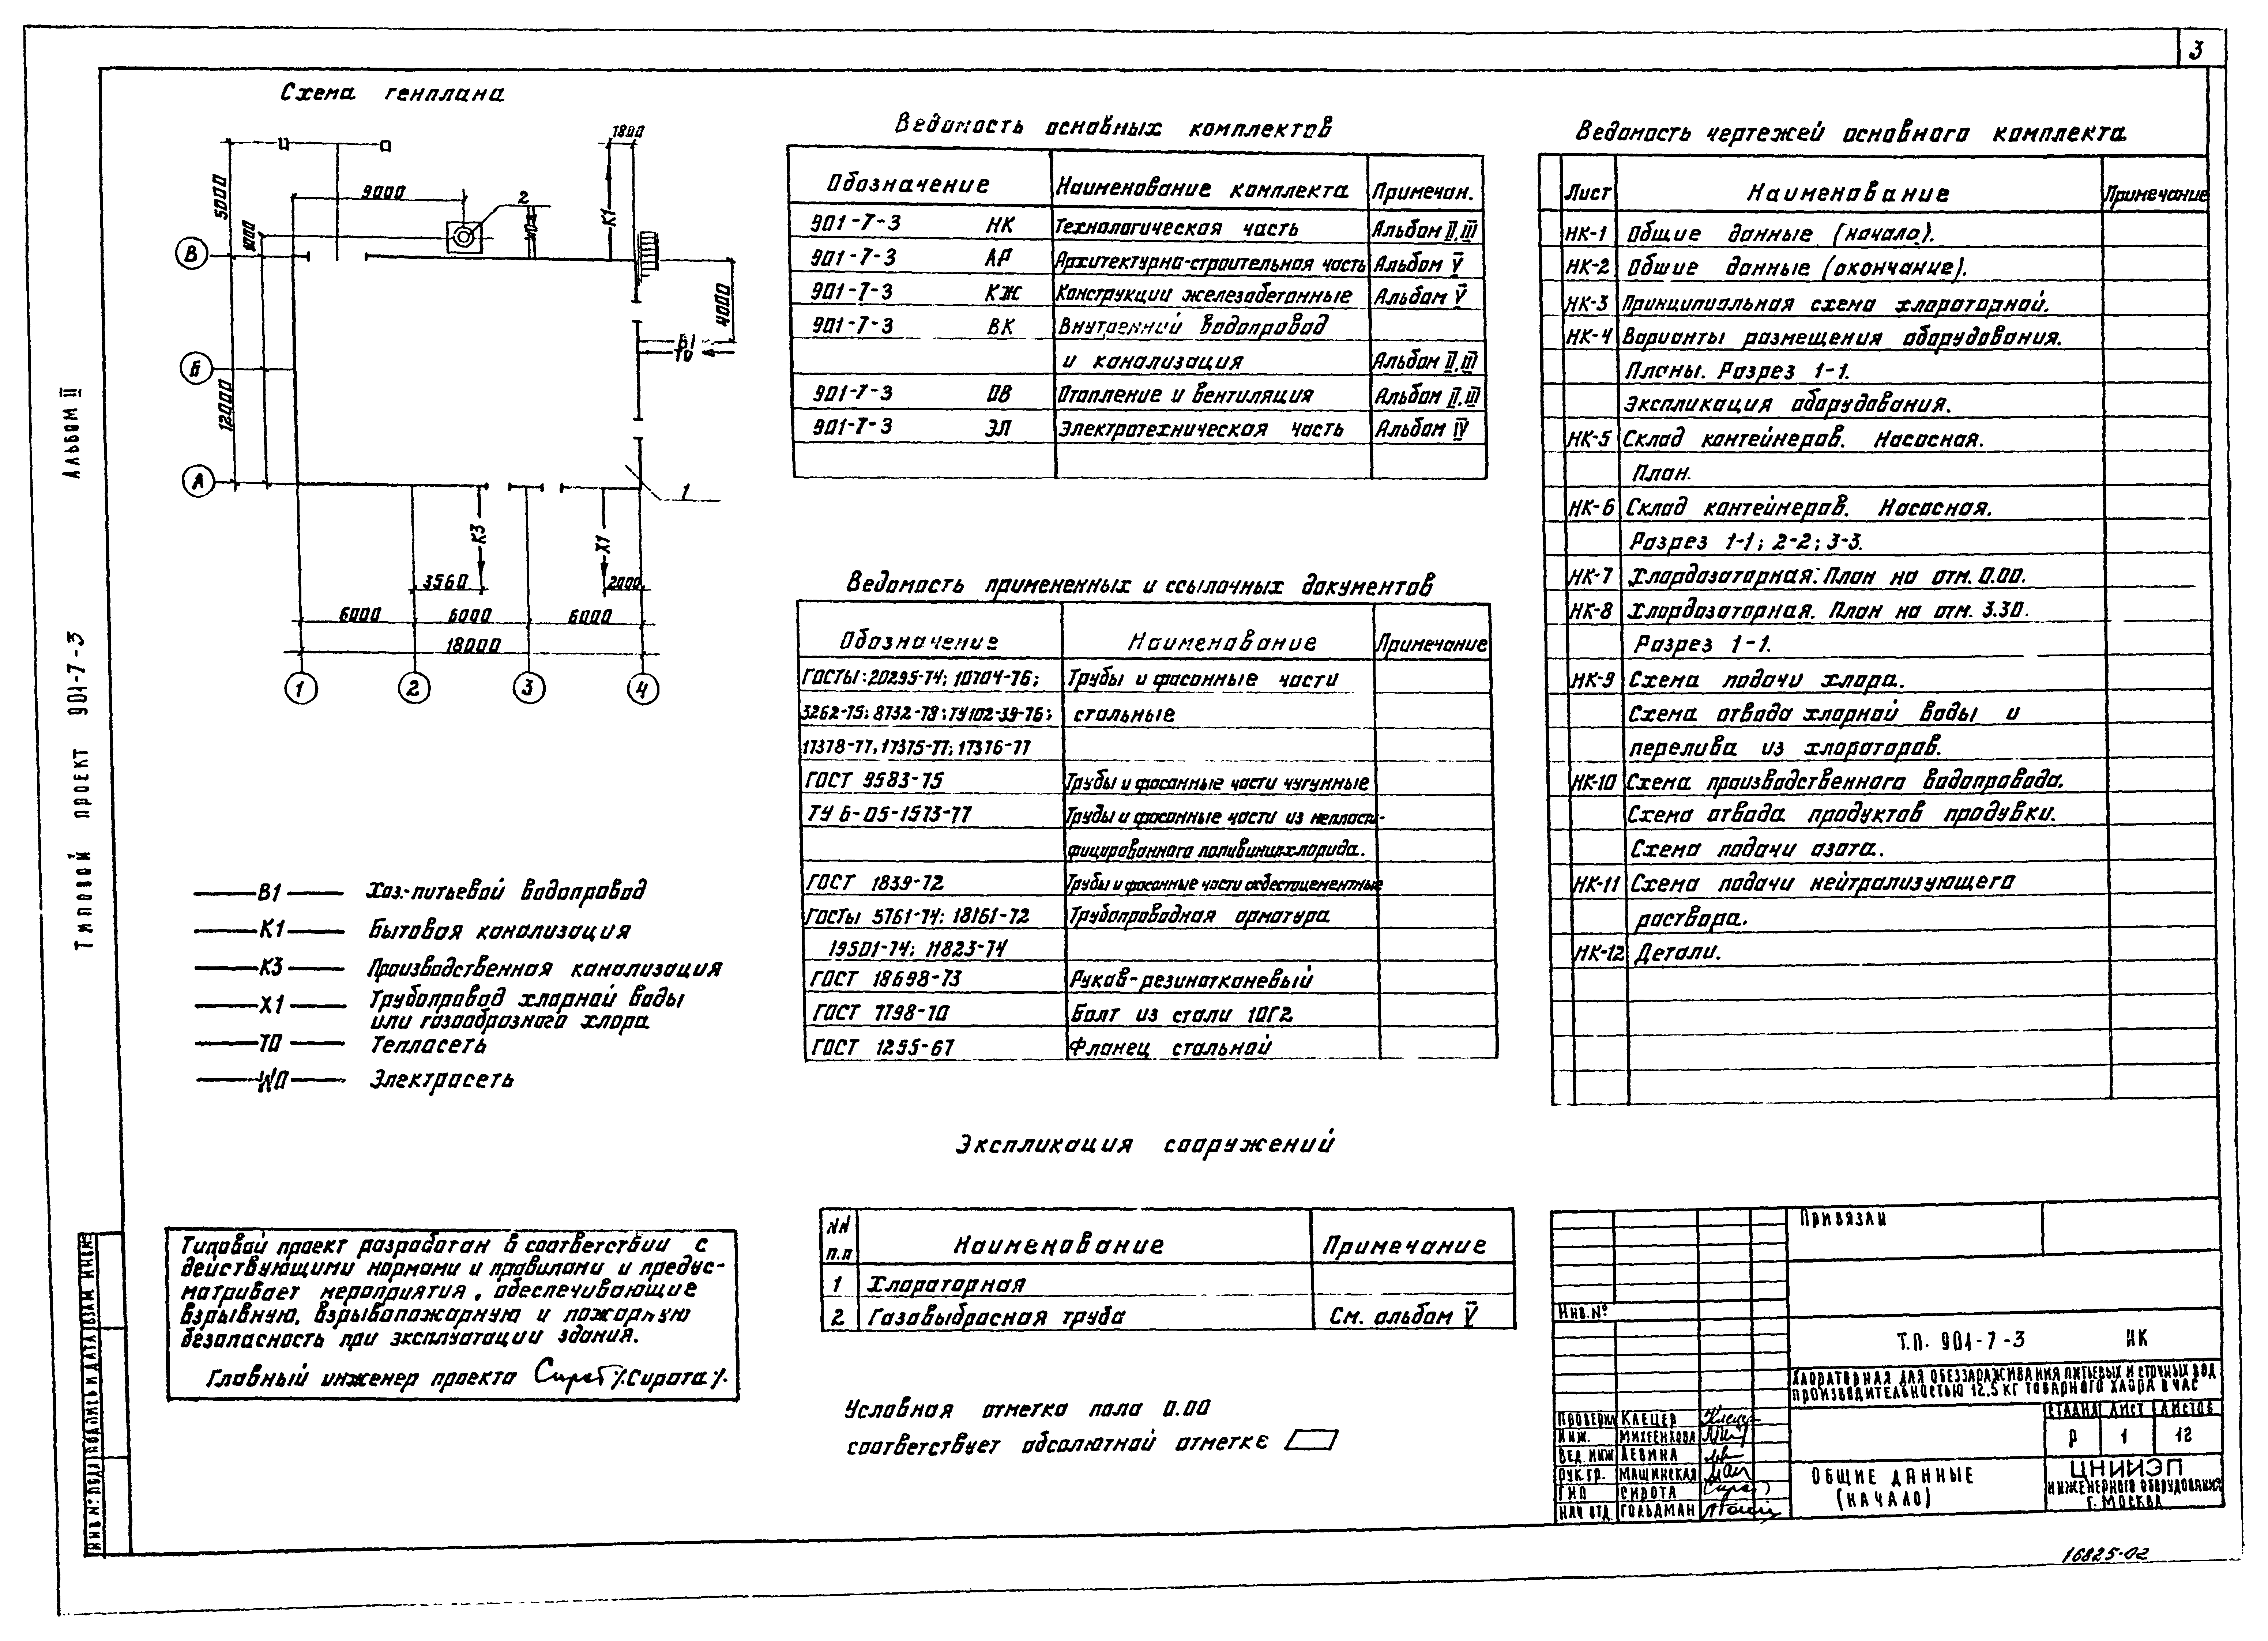 3
Схема генплана
1800
5000
9000
2
К1
W0
1000
В
4000
В1
Т0
Б
12000
А
1
К3
Х1
3560
2000
6000
6000
6000
18000
1
2
3
4
Альбом II
Типовой проект 901-7-3
В1 Хоз.-питьевой водопровод
К1 Бытовая канализация
К3 Производственная канализация
Х1 Трубопровод хлорной воды
или газообразного хлора
Т0 Теплосеть
W0 Электросеть
Типовой проект разработан в соответствии с
действующими нормами и правилами и предус-
матривает мероприятия, обеспечивающие
взрывную, взрывопожарную и пожарную
безопасность при эксплуатации здания.
Главный инженер проекта /Сирота/.
Ведомость основных комплектов
Обозначение Наименование комплекта Примечан.
901-7-3 НК Технологическая часть Альбом II, III
901-7-3 АР Архитектурно-строительная часть Альбом V
901-7-3 КЖ Конструкции железобетонные Альбом V
901-7-3 ВК Внутренний водопровод
и канализация Альбом II, III
901-7-3 ОВ Отопление и вентиляция Альбом II, III
901-7-3 ЭЛ Электротехническая часть Альбом IV
Ведомость примененных и ссылочных документов
Обозначение Наименование Примечание
ГОСТы: 20295-74; 10704-76; Трубы и фасонные части
3262-75; 8732-78; ТУ102-39-76; стальные
17378-77, 17375-77; 17376-77
ГОСТ 9583-75 Трубы и фасонные части чугунные
ТУ 6-05-1573-77 Трубы и фасонные части из непласти-
фицированного поливинилхлорида.
ГОСТ 1839-72 Трубы и фасонные части асбестоцементные
ГОСТы 5761-74; 18161-72 Трубопроводная арматура
19501-74; 11823-74
ГОСТ 18698-73 Рукав-резинотканевый
ГОСТ 7798-70 Болт из стали 10Г2
ГОСТ 1255-67 Фланец стальной
Экспликация сооружений
NN п.п Наименование Примечание
1 Хлораторная
2 Газовыбросная труба См. альбом V
Условная отметка пола 0.00
соответствует абсолютной отметке
Ведомость чертежей основного комплекта
Лист Наименование Примечание
НК-1 Общие данные (начало).
НК-2 Общие данные (окончание).
НК-3 Принципиальная схема хлораторной.
НК-4 Варианты размещения оборудования.
Планы. Разрез 1-1.
Экспликация оборудования.
НК-5 Склад контейнеров. Насосная.
План.
НК-6 Склад контейнеров. Насосная.
Разрез 1-1; 2-2; 3-3.
НК-7 Хлордозаторная. План на отм. 0.00.
НК-8 Хлордозаторная. План на отм. 3.30.
Разрез 1-1.
НК-9 Схема подачи хлора.
Схема отвода хлорной воды и
перелива из хлораторов.
НК-10 Схема производственного водопровода.
Схема отвода продуктов продувки.
Схема подачи азота.
НК-11 Схема подачи нейтрализующего
раствора.
НК-12 Детали.
Привязан
Инв. №
Т.П. 901-7-3 НК
Хлораторная для обеззараживания питьевых и сточных вод
производительностью 12.5 кг товарного хлора в час
Проверил Клецер
Инж. Михеенкова
Вед. инж Левина
Рук. гр. Машинская
ГИП Сирота
Нач отд Гольдман
Стадия Лист Листов
Р 1 12
Общие данные
(начало)
ЦНИИЭП
инженерного оборудования
г. Москва
Инв № подл Подпись и дата Взам. инв №
16825-02